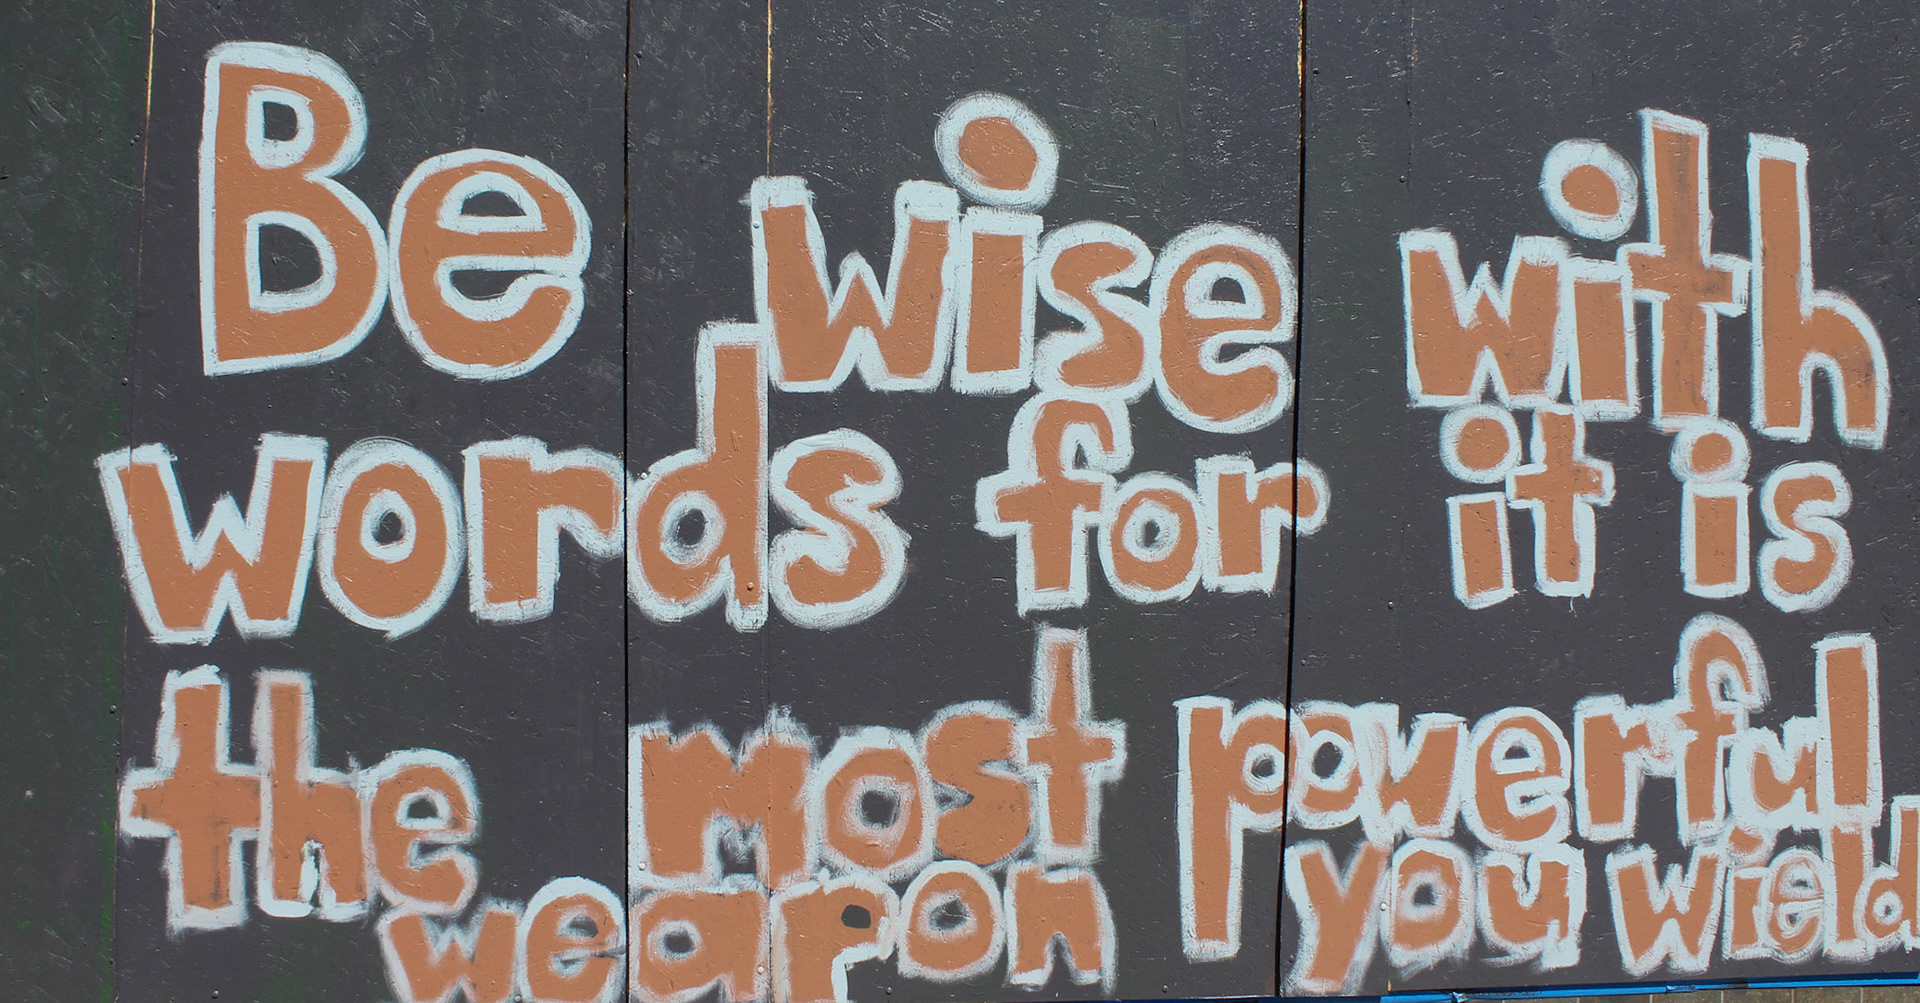 Be wise with
words for it is
the most powerful
weapon you wield